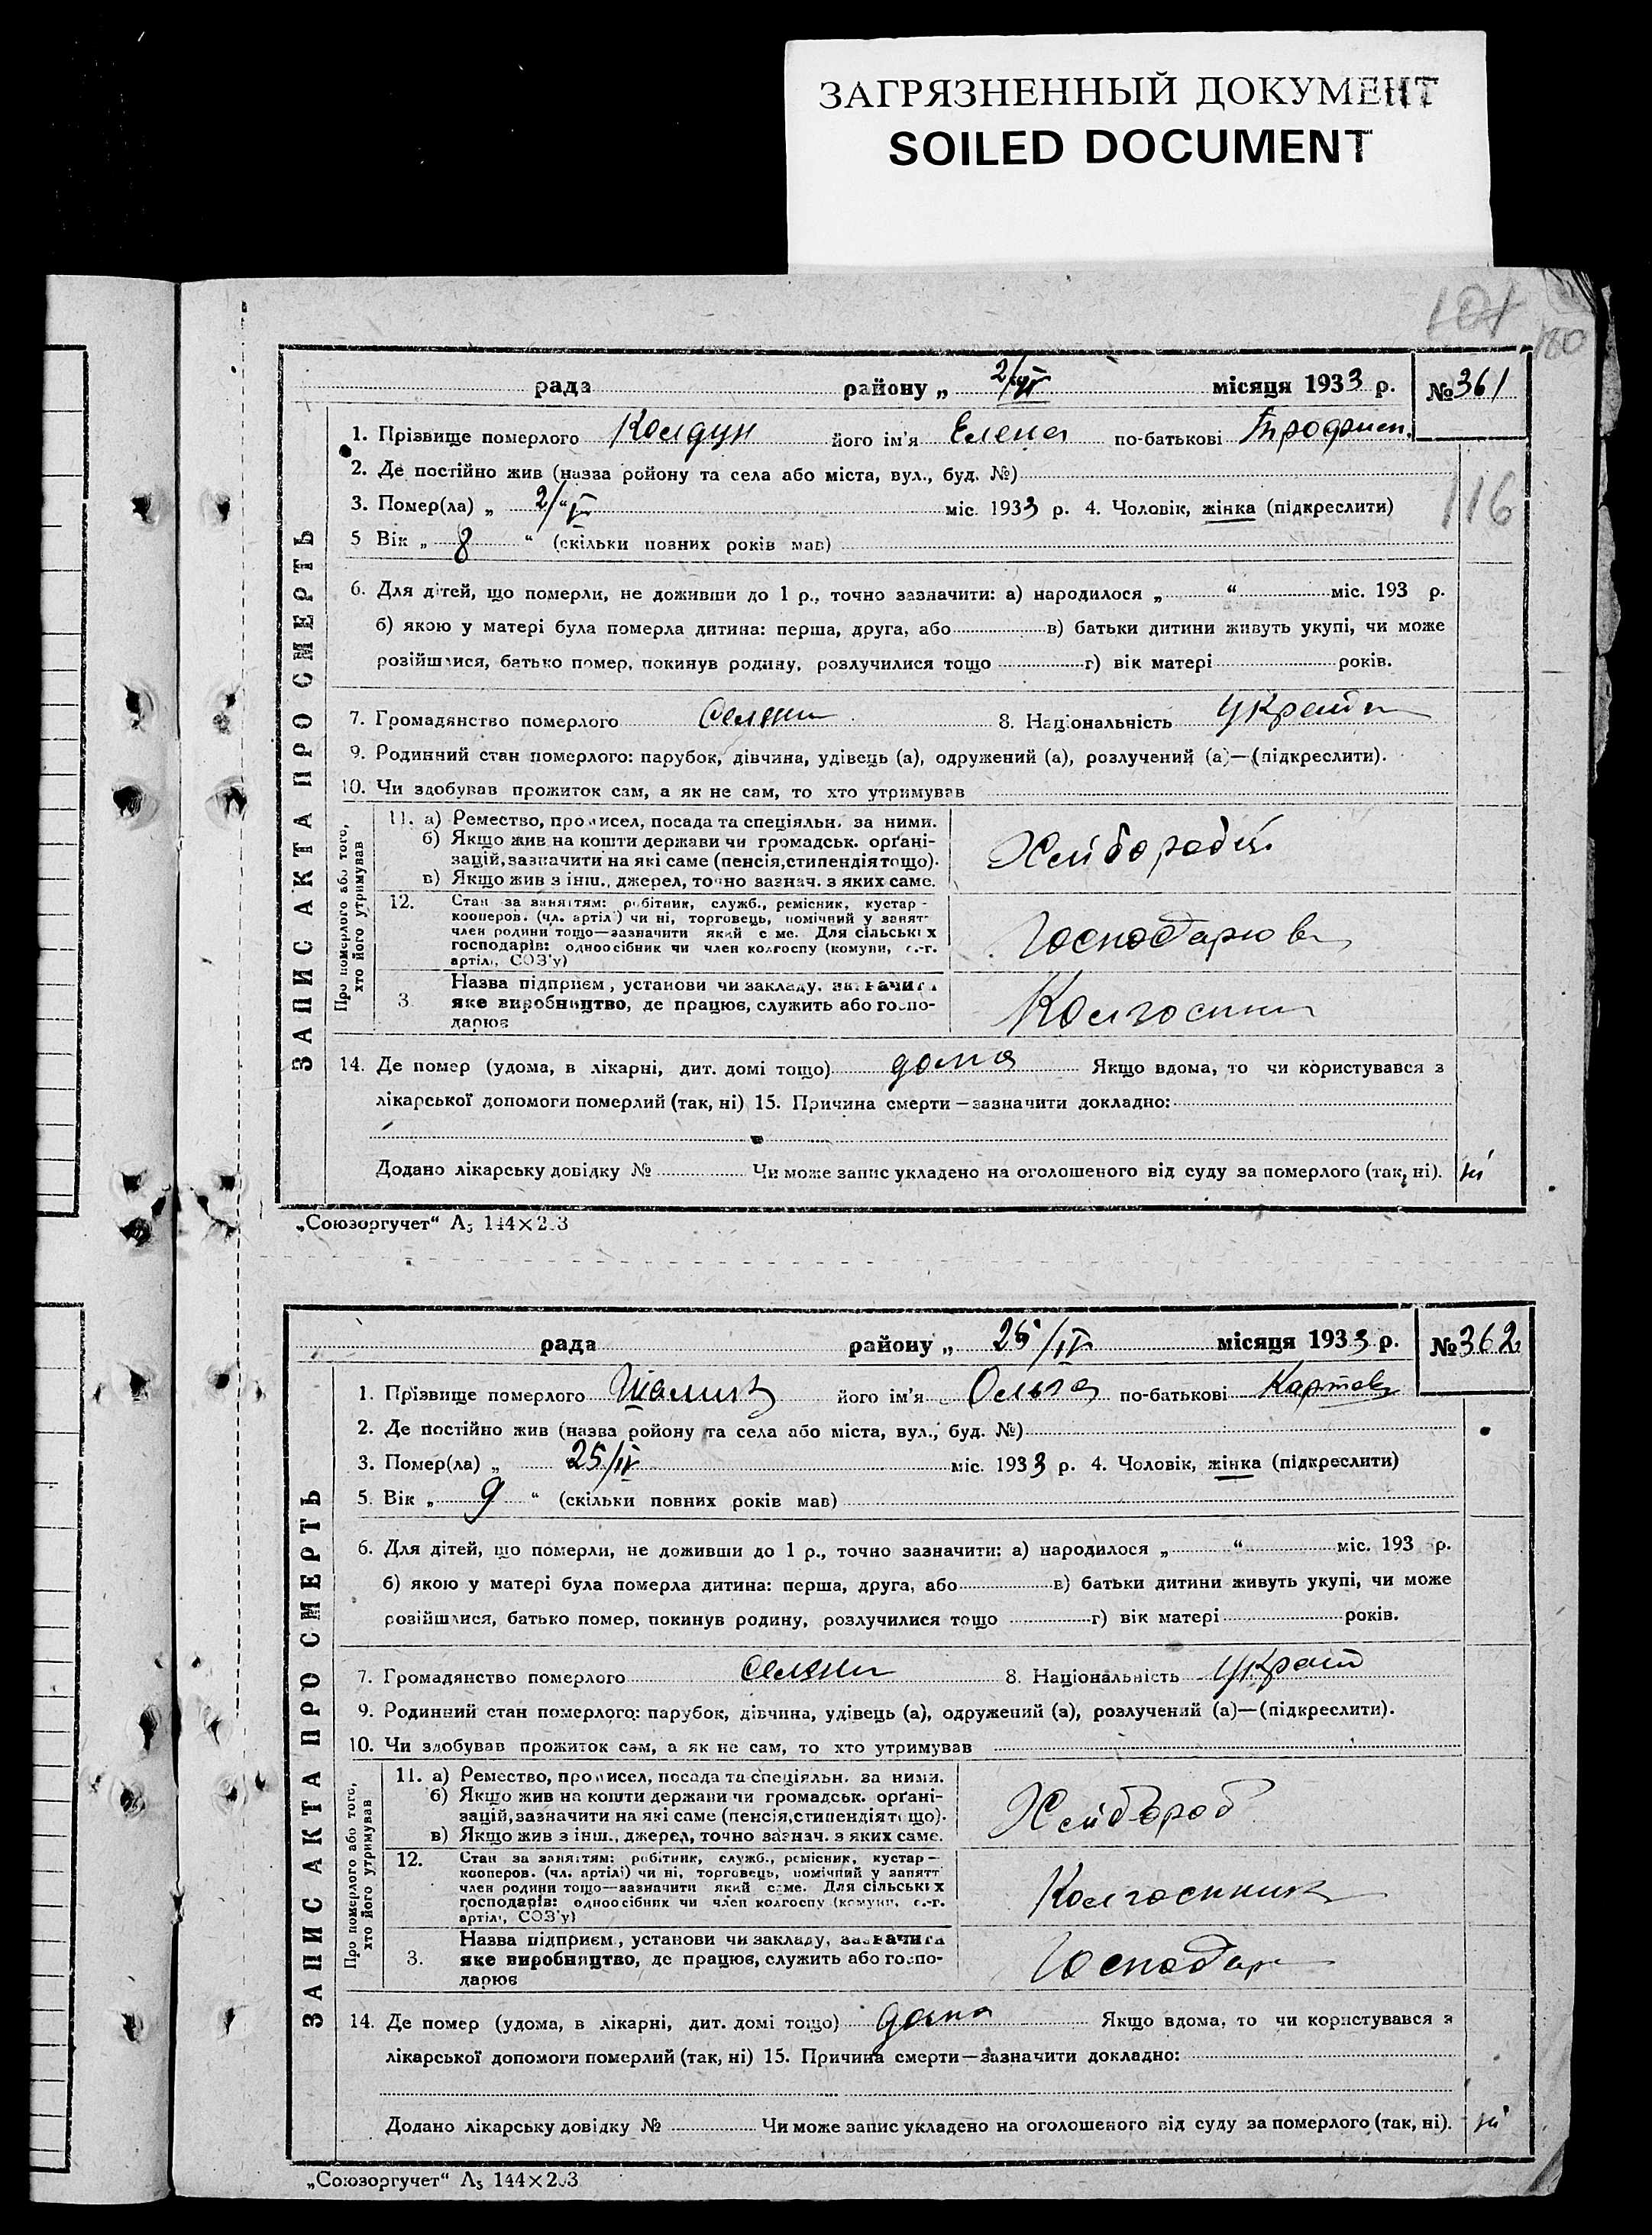 ЗАГРЯЗНЕННЫЙ ДОКУМЕНТ
SOILED DOCUMENT
101
180
рада району „ 2/VI місяця 1933 р. № 361
1. Прізвище померлого Колдун його ім'я Елена по-батькові Трофим.
2. Де постійно жив (назва ройону та села або міста, вул., буд. №)
3. Помер(ла) „ 2/ міс. 1933 р. 4. Чоловік, жінка (підкреслити)
116
5 Вік „ 8 “ (скільки повних років мав)
6. Для дітей, що померли, не доживши до 1 р., точно зазначити: а) народилося „ “ міс. 193 р.
б) якою у матері була померла дитина: перша, друга, або в) батьки дитини живуть укупі, чи може
розійшлися, батько помер, покинув родину, розлучилися тощо г) вік матері років.
7. Громадянство померлого Селяни 8. Національність Україн
9. Родинний стан померлого: парубок, дівчина, удівець (а), одружений (а), розлучений (а)—(підкреслити).
10. Чи здобував прожиток сам, а як не сам, то хто утримував
ЗАПИС АКТА ПРО СМЕРТЬ
Про померлого або того, хто його утримував
11. а) Ремество, промисел, посада та спеціяльн. за ними.
б) Якщо жив на кошти держави чи громадськ. орґані-
зацій, зазначити на які саме (пенсія, стипендія тощо).
в) Якщо жив з інш., джерел, точно зазнач. з яких саме.
Хліборобец
12. Стан за заняттям: робітник, служб., ремісник, кустар-
кооперов. (чл. артілі) чи ні, торговець, помічний у занят-
член родини тощо—зазначити який саме. Для сільських
господарів: одноосібник чи член колгоспу (комуни, с.-г.
артілі, СОЗ'у)
Господарюв
3. Назва підприєм., установи чи закладу, зазначити
яке виробництво, де працює, служить або госпо-
дарює
Колгоспни
14. Де помер (удома, в лікарні, дит. домі тощо) дома Якщо вдома, то чи користувався з
лікарської допомоги померлий (так, ні) 15. Причина смерти—зазначити докладно:
Додано лікарську довідку № Чи може запис укладено на оголошеного від суду за померлого (так, ні). ні
„Союзоргучет“ А5 144×203
рада району „ 25/IV місяця 1933 р. № 362
1. Прізвище померлого його ім'я Ольга по-батькові Карпов
2. Де постійно жив (назва ройону та села або міста, вул., буд. №)
3. Помер(ла) „ 25/IV міс. 1933 р. 4. Чоловік, жінка (підкреслити)
5. Вік „ 9 “ (скільки повних років мав)
6. Для дітей, що померли, не доживши до 1 р., точно зазначити: а) народилося „ “ міс. 193 р.
б) якою у матері була померла дитина: перша, друга, або в) батьки дитини живуть укупі, чи може
розійшлися, батько помер, покинув родину, розлучилися тощо г) вік матері років.
7. Громадянство померлого Селяни 8. Національність Україн
9. Родинний стан померлого: парубок, дівчина, удівець (а), одружений (а), розлучений (а)—(підкреслити).
10. Чи здобував прожиток сам, а як не сам, то хто утримував
ЗАПИС АКТА ПРО СМЕРТЬ
Про померлого або того, хто його утримував
11. а) Ремество, промисел, посада та спеціяльн. за ними.
б) Якщо жив на кошти держави чи громадськ. орґані-
зацій, зазначити на які саме (пенсія, стипендія тощо).
в) Якщо жив з інш., джерел, точно зазнач. з яких саме.
Хлібороб
12. Стан за заняттям: робітник, служб., ремісник, кустар-
кооперов. (чл. артілі) чи ні, торговець, помічний у занятт
член родини тощо—зазначити який саме. Для сільських
господарів: одноосібник чи член колгоспу (комуни, с.-г.
артілі, СОЗ'у)
Колгоспник
3. Назва підприєм., установи чи закладу, зазначити
яке виробництво, де працює, служить або госпо-
дарює
Господар
14. Де помер (удома, в лікарні, дит. домі тощо) дома Якщо вдома, то чи користувався з
лікарської допомоги померлий (так, ні) 15. Причина смерти—зазначити докладно:
Додано лікарську довідку № Чи може запис укладено на оголошеного від суду за померлого (так, ні). ні
„Союзоргучет“ А5 144×203